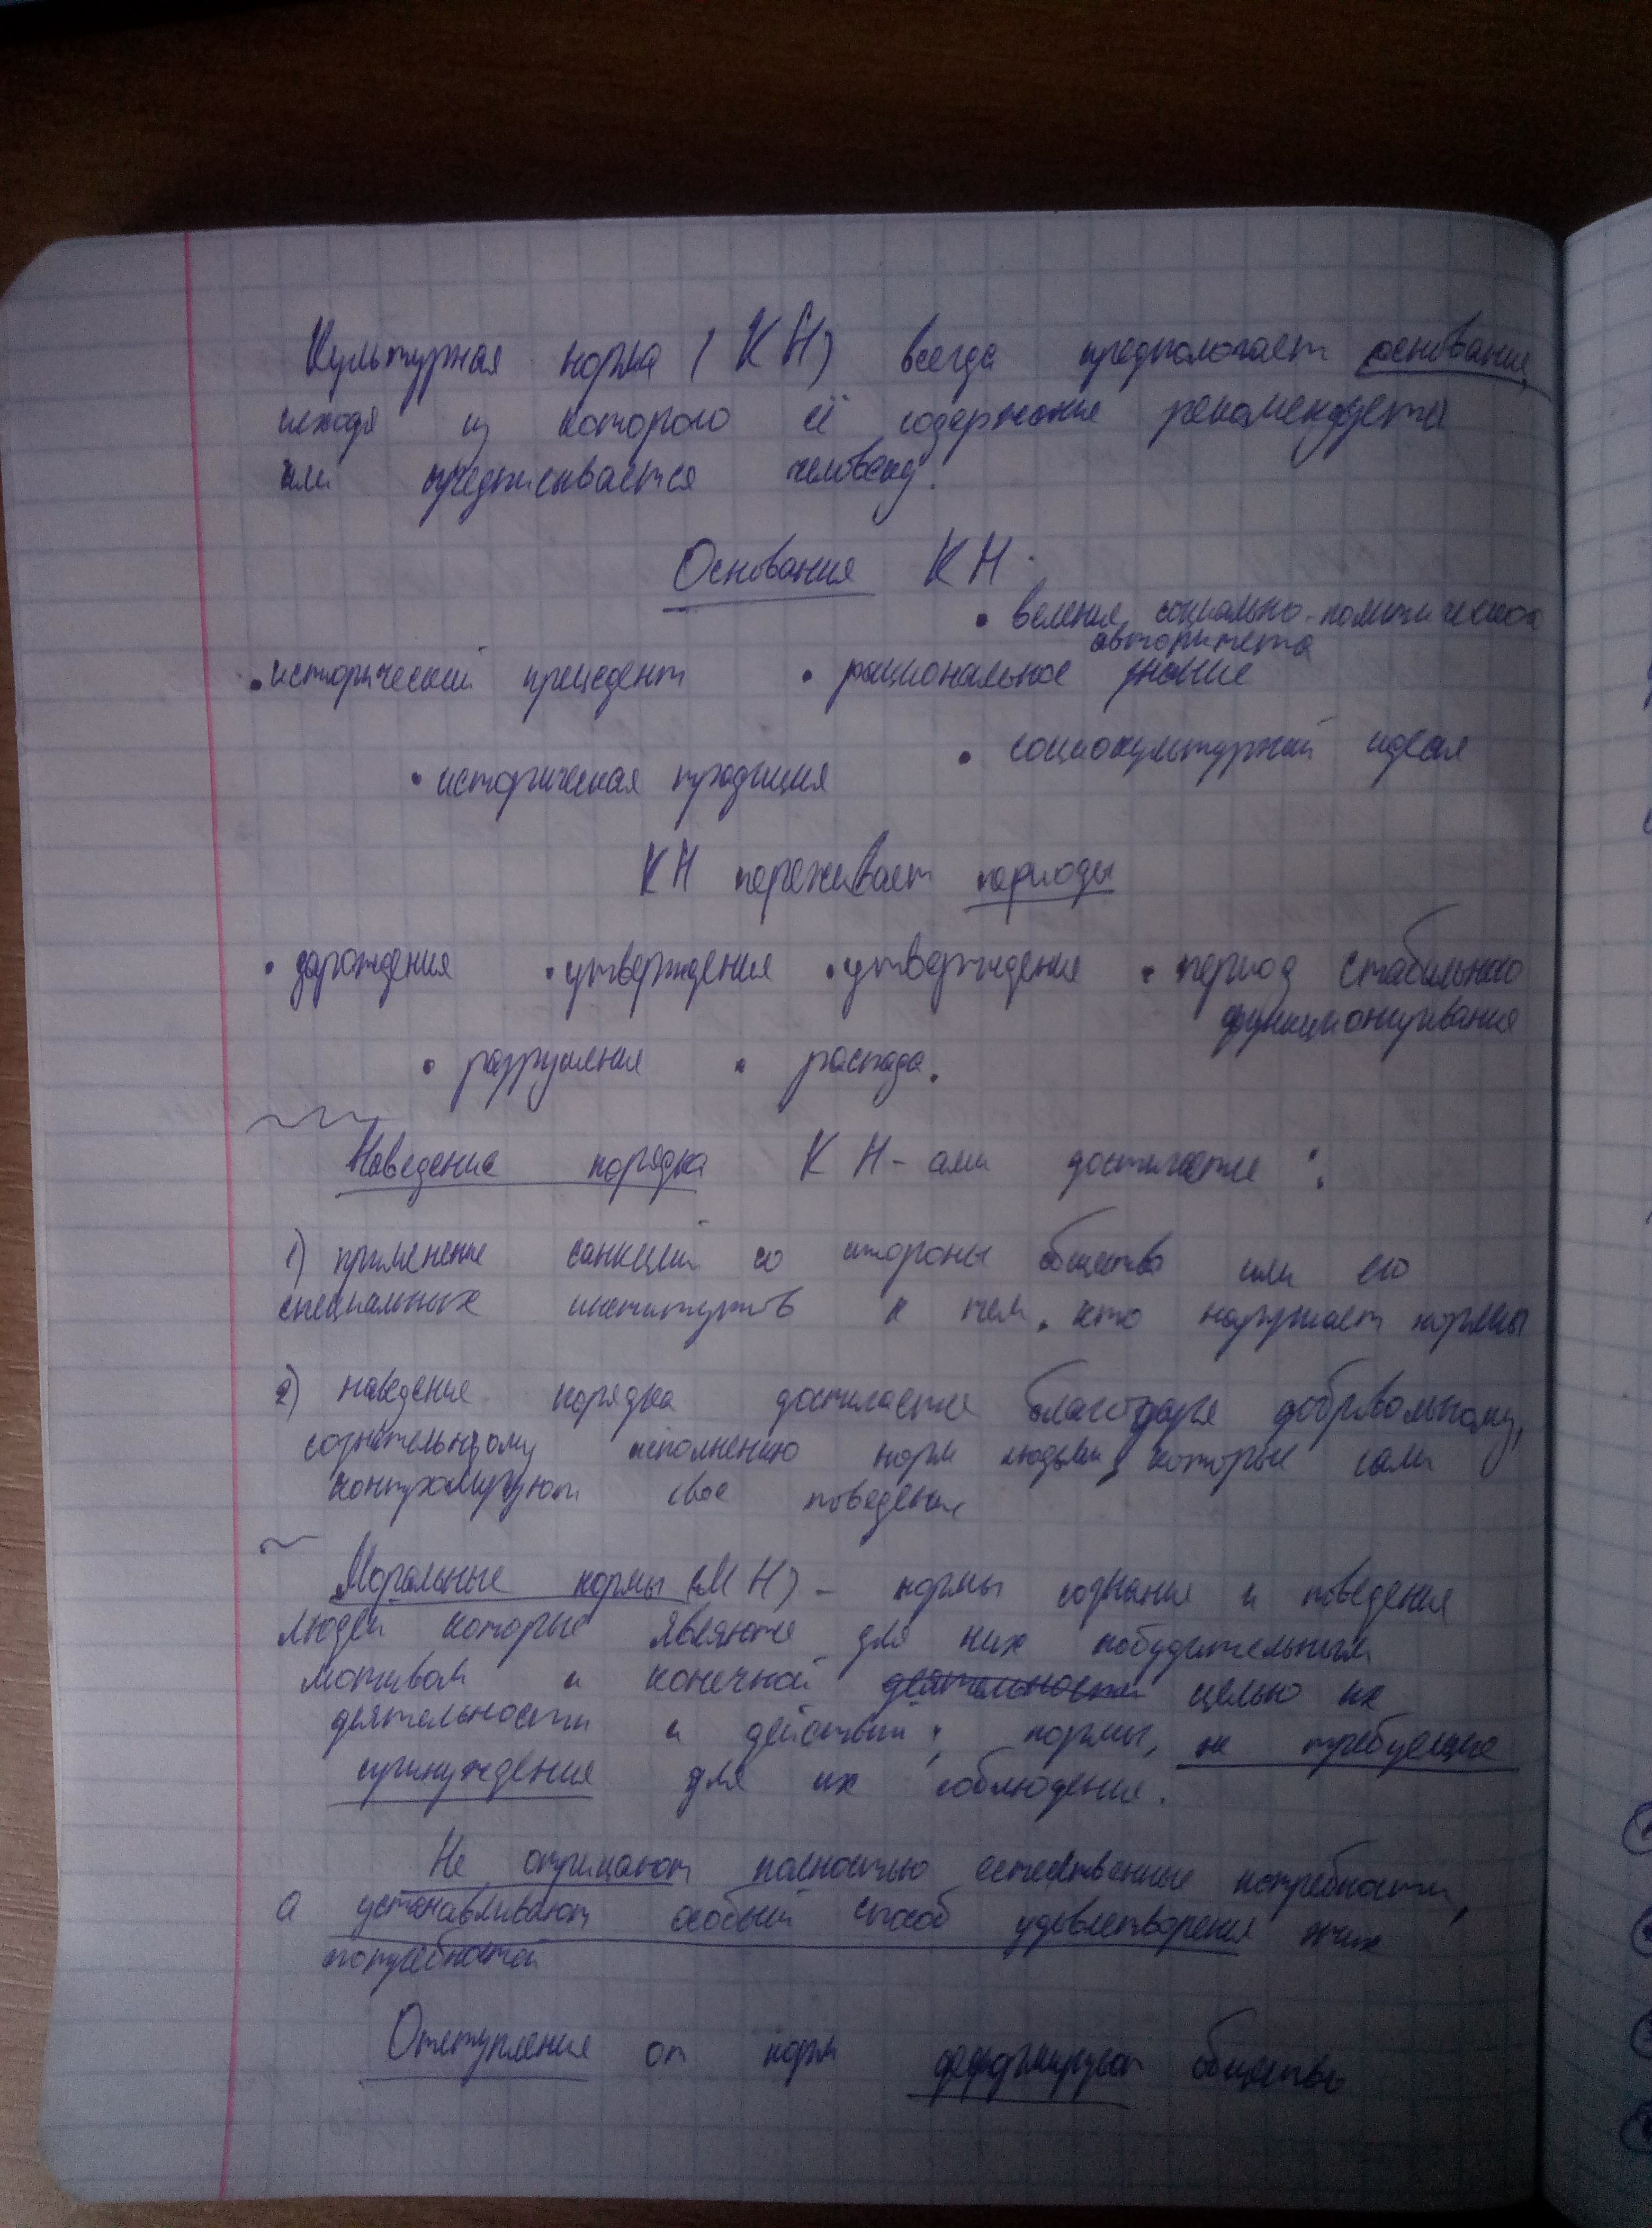 Культурная норма (КН) всегда предполагает основание,
исходя из которого её содержание рекомендуется
или предписывается человеку.
Основания КН:
• веление социально-политического
авторитета
• исторический прецедент • рациональное знание
• социокультурный идеал
• историческая традиция
КН переживает периоды
• зарождения • утверждения • утверждения • период стабильного
функционирования
• разрушения • распада.
Наведение порядка КН-ами достигается:
1) применение санкций со стороны общества или его
специальных институтов к тем, кто нарушает нормы
2) наведение порядка достигается благодаря добровольному,
сознательному исполнению норм людьми, которые сами
контролируют свое поведение
Моральные нормы (МН) - нормы сознания и поведения
людей которые являются для них побудительным
мотивом и конечной деятельностью целью их
деятельности и действий; нормы, не требующие
принуждения для их соблюдения.
Не отрицают полностью естественные потребности,
а устанавливают особый способ удовлетворения этих
потребностей
Отступления от норм деформирует общество